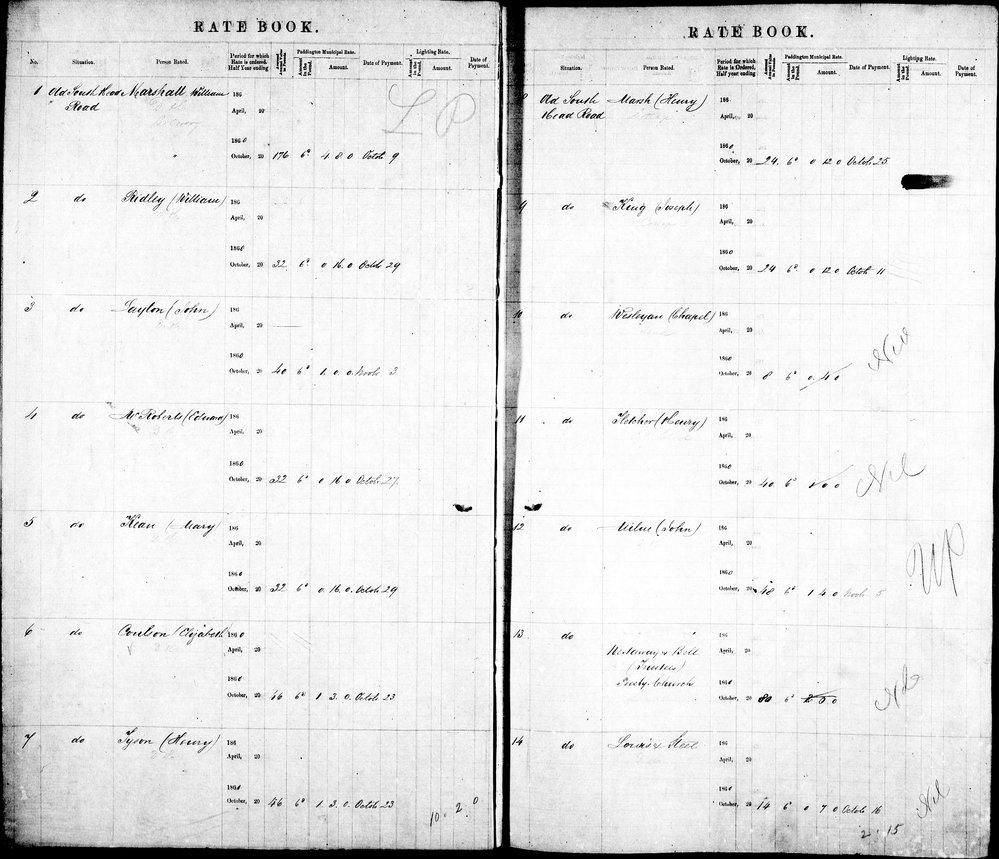 RATE BOOK.
No. Situation. Person Rated. Period for which Rate is ordered. Half Year ending Paddington Municipal Rate. Amount in the Pound. Amount. Date of Payment. Lighting Rate. Amount in the Pound. Amount. Date of Payment.
1 Old South Head Marshall William 186
Road April, 20
L P
1860
" October, 20 176 6d 4 8 0 Octob 9
2 do Ridley (William) 186
April, 20
1860
October, 20 32 6d 0 16 0 Octob 29
3 do Layton (John) 186
April, 20
1860
October, 20 40 6d 1. 0. 0. Novb 3
4 do McRoberts (Edward) 186
April, 20
1860
October, 20 32 6d 0 16 0 Octob 27
5 do Kean (Mary) 186
April, 20
1860
October, 20 32 6d 0 16. 0. Octob 29
6 do Coulson (Elizabeth) 1860
April, 20
1860
October, 20 46 6d 1 3. 0. Octob 23
7 do Tyson (Henry) 186
April, 20
1860
October, 20 46 6d 1. 3. 0. Octob 23
10. 2. 0
RATE BOOK.
Situation. Person Rated. Period for which Rate is Ordered. Half Year ending Paddington Municipal Rate. Amount in the Pound. Amount. Date of Payment. Lighting Rate. Amount in the Pound. Amount. Date of Payment.
8 Old South Marsh (Henry) 186
Head Road April, 20
1860
October, 20 24. 6d 0 12 0 Octob 25
9 do King (Joseph) 186
April, 20
1860
October, 20 24 6d 0 12 0 Octob 11
10 do Wesleyan (Chapel) 186
April, 20
1860 Nil
October, 20 8 6d 0. 4 0
11 do Fletcher (Henry) 186
April, 20
1860
October, 20 40 6d 1 0 0 Nil
12 do Milne (John) 186
April, 20
UP
1860
October, 20 48 6d 1 4 0 Novb 5
13 do 186
& Bell April, 20
(Trustees)
Presby. Church 1860
October, 20 80 6d 2 0 0 Nil
14 do Louis & Steel 186
April, 20
1860
October, 20 14 6 0 7 0 Octob 16 Nil
2. 15